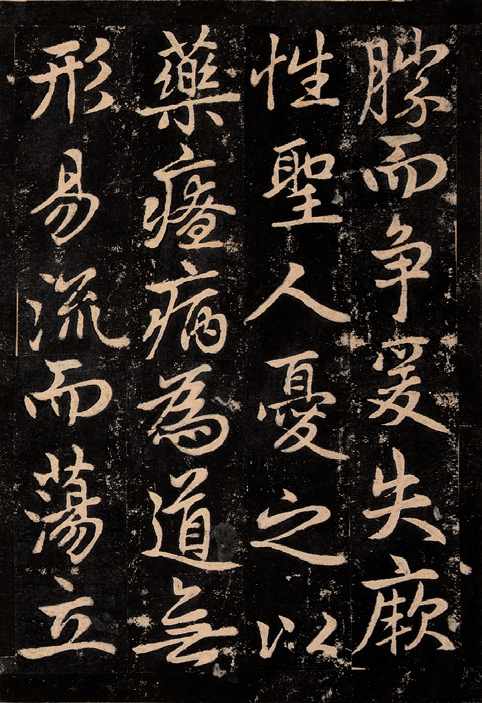 勝而争爰失厥
性聖人憂之以
藥療病為道無
形易流而蕩立